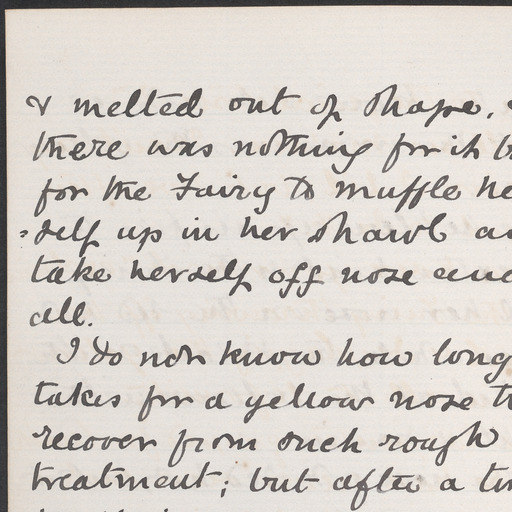 & melted out of shape.
there was nothing for it
for the Fairy to muffle he
=self up in her shawl a
take herself off nose and
all.
I do not know how long
takes for a yellow nose t
recover from such rough
treatment; but after a ti